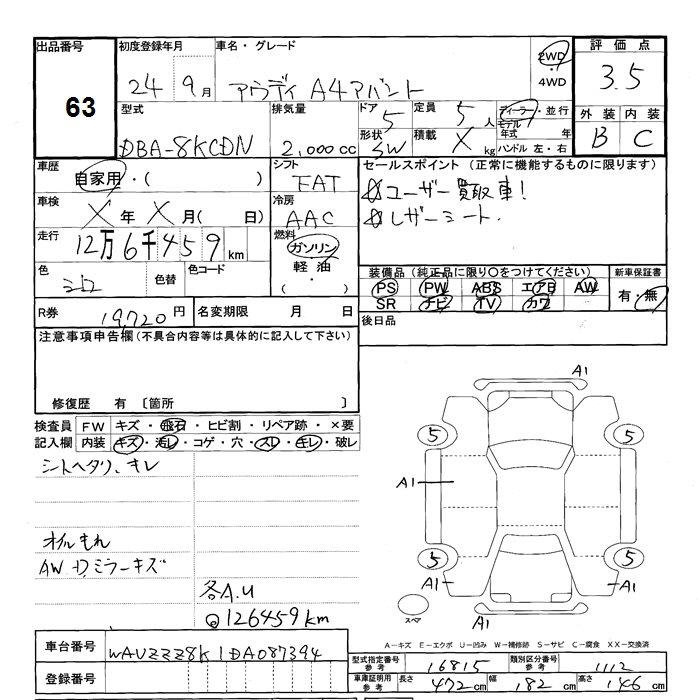 出品番号
63
初度登録年月
24 年 9 月
車名・グレード
アウディ A4アバント
2WD
・
4WD
評価点
3.5
外装 内装
B C
型式
DBA-8KCDN
排気量
2,000 cc
ドア 5
形状 SW
定員 5 人
積載 X kg
ディーラー・並行
モデル
年式 年
ハンドル 左・右
車歴
自家用・( )
シフト
FAT
車検
X 年 X 月( 日)
冷房
AAC
走行
12万6千459 km
燃料
ガソリン
軽油
・( )
色
シロ
色替
色コード
R券 19,720 円
名変期限 月 日
セールスポイント (正常に機能するものに限ります)
ユーザー買取車!
レザーシート.
装備品(純正品に限り〇をつけてください)
新車保証書
PS PW ABS エアB AW
SR ナビ TV カワ
有・無
後日品
注意事項申告欄(不具合内容等は具体的に記入して下さい)
修復歴 有〔箇所 〕
検査員 FW キズ・飛石・ヒビ割・リペア跡・×要
記入欄 内装 キズ・汚レ・コゲ・穴・スレ・キレ・破レ
シートヘタリ、キレ
オイルもれ
AW・Dミラーキズ
各A.U
@126459km
A1
5
5
A1
5
5
A1
A1
A1
スペア
A-キズ E-エクボ U-凹み W-補修跡 S-サビ C-腐食 XX-交換済
車台番号
WAUZZZ8K1DA087394
登録番号
型式指定番号
参考
16815
類別区分番号
参考
1112
車庫証明用
参考
長さ 472 cm
幅 182 cm
高さ 146 cm